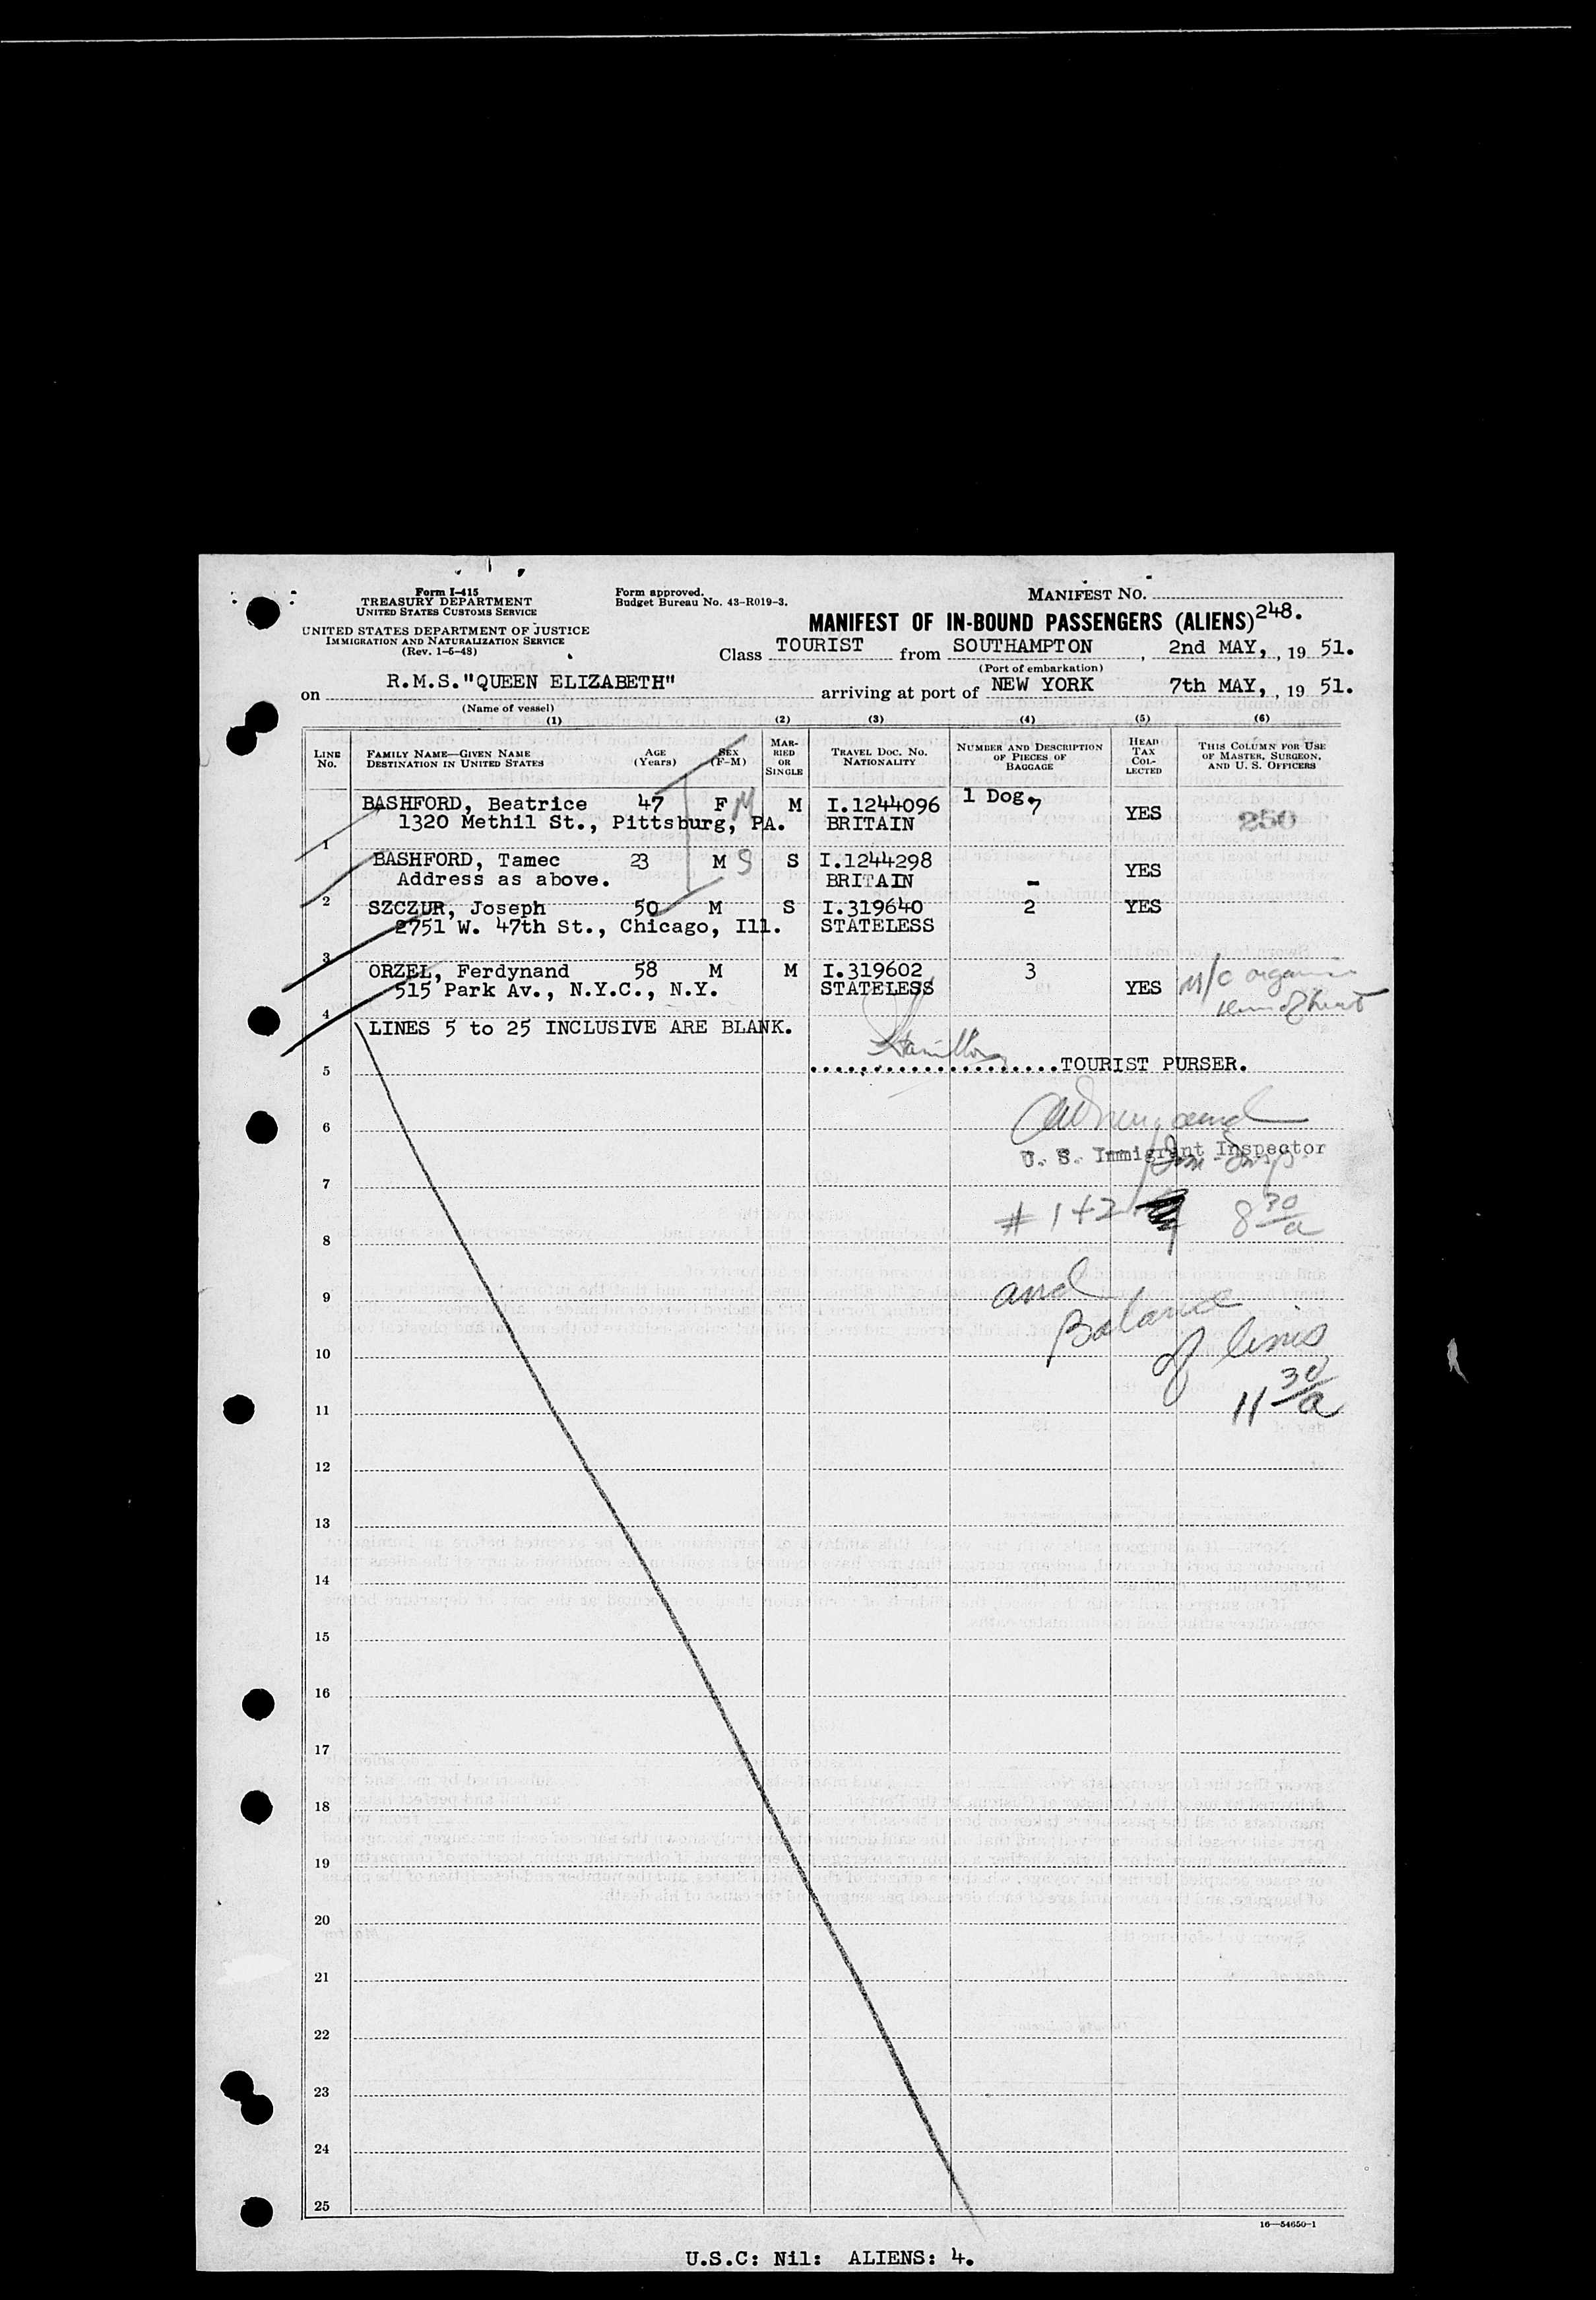 Form I-415
TREASURY DEPARTMENT
UNITED STATES CUSTOMS SERVICE
UNITED STATES DEPARTMENT OF JUSTICE
IMMIGRATION AND NATURALIZATION SERVICE
(Rev. 1-5-48)
Form approved.
Budget Bureau No. 43-R019-3.
MANIFEST No.
MANIFEST OF IN-BOUND PASSENGERS (ALIENS) 248.
Class TOURIST from SOUTHAMPTON, 2nd MAY, , 19 51.
(Port of embarkation)
on R.M.S."QUEEN ELIZABETH" arriving at port of NEW YORK 7th MAY, , 19 51.
(Name of vessel)
(1) (2) (3) (4) (5) (6)
LINE No. FAMILY NAME—GIVEN NAME DESTINATION IN UNITED STATES AGE (Years) SEX (F-M) MARRIED OR SINGLE TRAVEL DOC. No. NATIONALITY NUMBER AND DESCRIPTION OF PIECES OF BAGGAGE HEAD TAX COLLECTED THIS COLUMN FOR USE OF MASTER, SURGEON, AND U. S. OFFICERS
BASHFORD, Beatrice 47 F M M I.1244096 1 Dog. 7 YES 250
1 1320 Methil St., Pittsburg, PA. BRITAIN
BASHFORD, Tamec 23 M S S I.1244298 - YES
2 Address as above. BRITAIN
SZCZUR, Joseph 50 M S I.319640 2 YES
3 2751 W. 47th St., Chicago, Ill. STATELESS
ORZEL, Ferdynand 58 M M I.319602 3 YES
4 515 Park Av., N.Y.C., N.Y. STATELESS
LINES 5 to 25 INCLUSIVE ARE BLANK.
5 ....................TOURIST PURSER.
6
U. S. Immigrant Inspector
7
# 1+2 8 30/a
8
and
9
Balance
of lines
10
11 30/a
11
12
13
14
15
16
17
18
19
20
21
22
23
24
25
16—54650-1
U.S.C: Nil: ALIENS: 4.